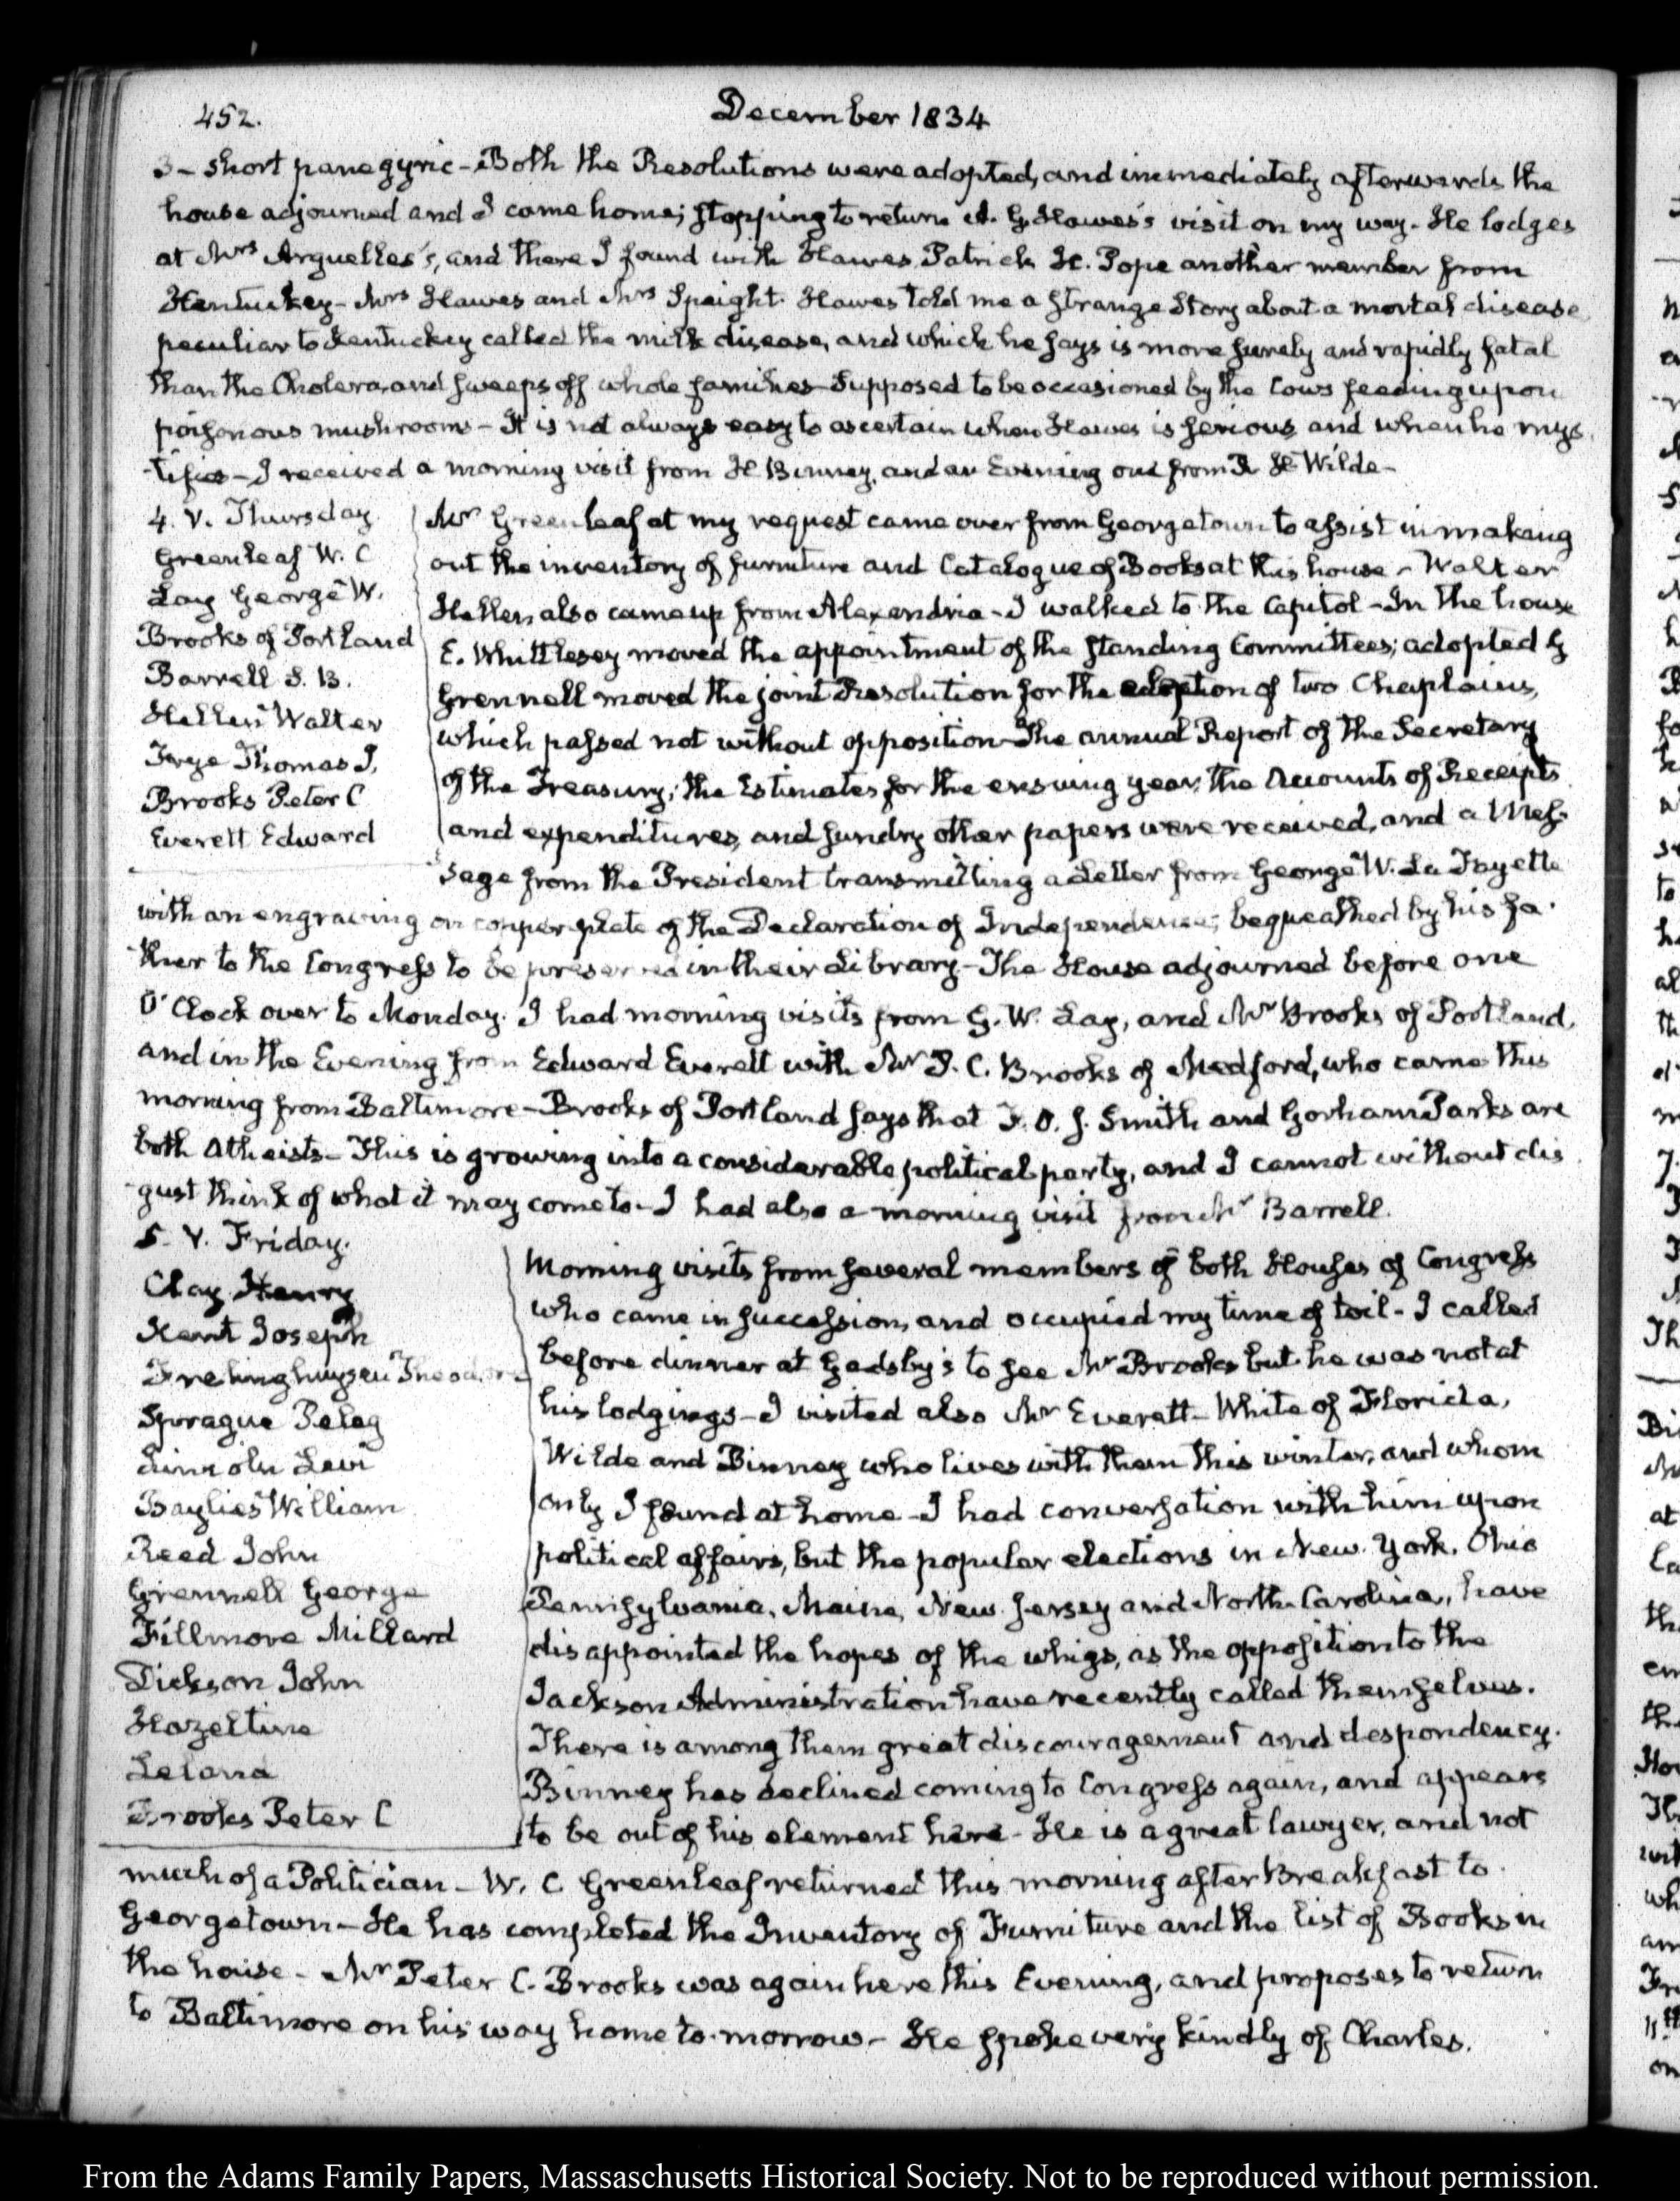 452.
December 1834
3 - short panegyric - Both the Resolutions were adopted, and immediately afterwards the
house adjourned and I came home; stopping to return A. G. Hawes's visit on my way. He lodges
at Mrs Arguelles's, and there I found with Hawes Patrick H. Pope another member from
Kentuckey - Mrs Hawes and Mrs Speight. Hawes told me a strange Story about a mortal disease
peculiar to Kentuckey called the milk disease, and which he says is more surely and rapidly fatal
than the Cholera, and sweeps off whole families - Supposed to be occasioned by the Cows feeding upon
poisonous mushrooms - It is not always easy to ascertain when Hawes is serious and when he mys-
tifies - I received a morning visit from H Binney, and an Evening one from R H Wilde -
4. V. Thursday
Greenleaf W. C
Lay George W.
Brooks of Portland
Barrell S. B.
Hellen Walter
Frye Thomas J.
Brooks Peter C
Everett Edward
Mr Greenleaf at my request came over from Georgetown to assist in making
out the inventory of furniture and Catalogue of Books at this house - Walter
Hellen also came up from Alexandria - I walked to the Capitol - In the house
E. Whittlesey moved the appointment of the standing Committees; adopted G
Grennell moved the joint Resolution for the election of two Chaplains,
which passed not without opposition - The annual Report of the Secretary
of the Treasury; the Estimates for the ensuing year, the Accounts of Receipts
and expenditures, and sundry other papers were received, and a Mes-
sage from the President transmitting a Letter from George W. La Fayette
with an engraving on copper plate of the Declaration of Independence; bequeathed by his fa-
ther to the Congress to be preserved in their Library - The House adjourned before one
O'Clock over to Monday. I had morning visits from G. W. Lay, and Mr Brooks of Portland,
and in the Evening from Edward Everett with Mr P. C. Brooks of Medford, who came this
morning from Baltimore - Brooks of Portland says that F. O. J. Smith and Gorham Parks are
both Atheists - This is growing into a considerable political party, and I cannot without dis
gust think of what it may come to - I had also a morning visit from Mr Barrell.
5. V. Friday.
Clay Henry
Kent Joseph
Frelinghuysen Theodore
Sprague Peleg
Lincoln Levi
Baylies William
Reed John
Grennell George
Fillmore Millard
Dickson John
Hazeltine
Letand
Brooks Peter C
Morning visits from several members of both Houses of Congress
who came in succession, and occupied my time of toil - I called
before dinner at Gadsby's to see Mr Brooks but he was not at
his lodgings - I visited also Mr Everett - White of Florida,
Wilde and Binney who lives with them this winter, and whom
only I found at home - I had conversation with him upon
political affairs, but the popular elections in New-York, Ohio
Pennsylvania, Maine, New Jersey and North-Carolina, have
disappointed the hopes of the whigs, as the opposition to the
Jackson Administration have recently called themselves.
There is among them great discouragement and despondency.
Binney has declined coming to Congress again, and appears
to be out of his element here - He is a great lawyer, and not
much of a Politician - W. C Greenleaf returned this morning after Breakfast to
Georgetown - He has completed the Inventory of Furniture and the list of Books in
the house - Mr Peter C. Brooks was again here this Evening, and proposes to return
to Baltimore on his way home to-morrow - He spoke very kindly of Charles.
From the Adams Family Papers, Massaschusetts Historical Society. Not to be reproduced without permission.